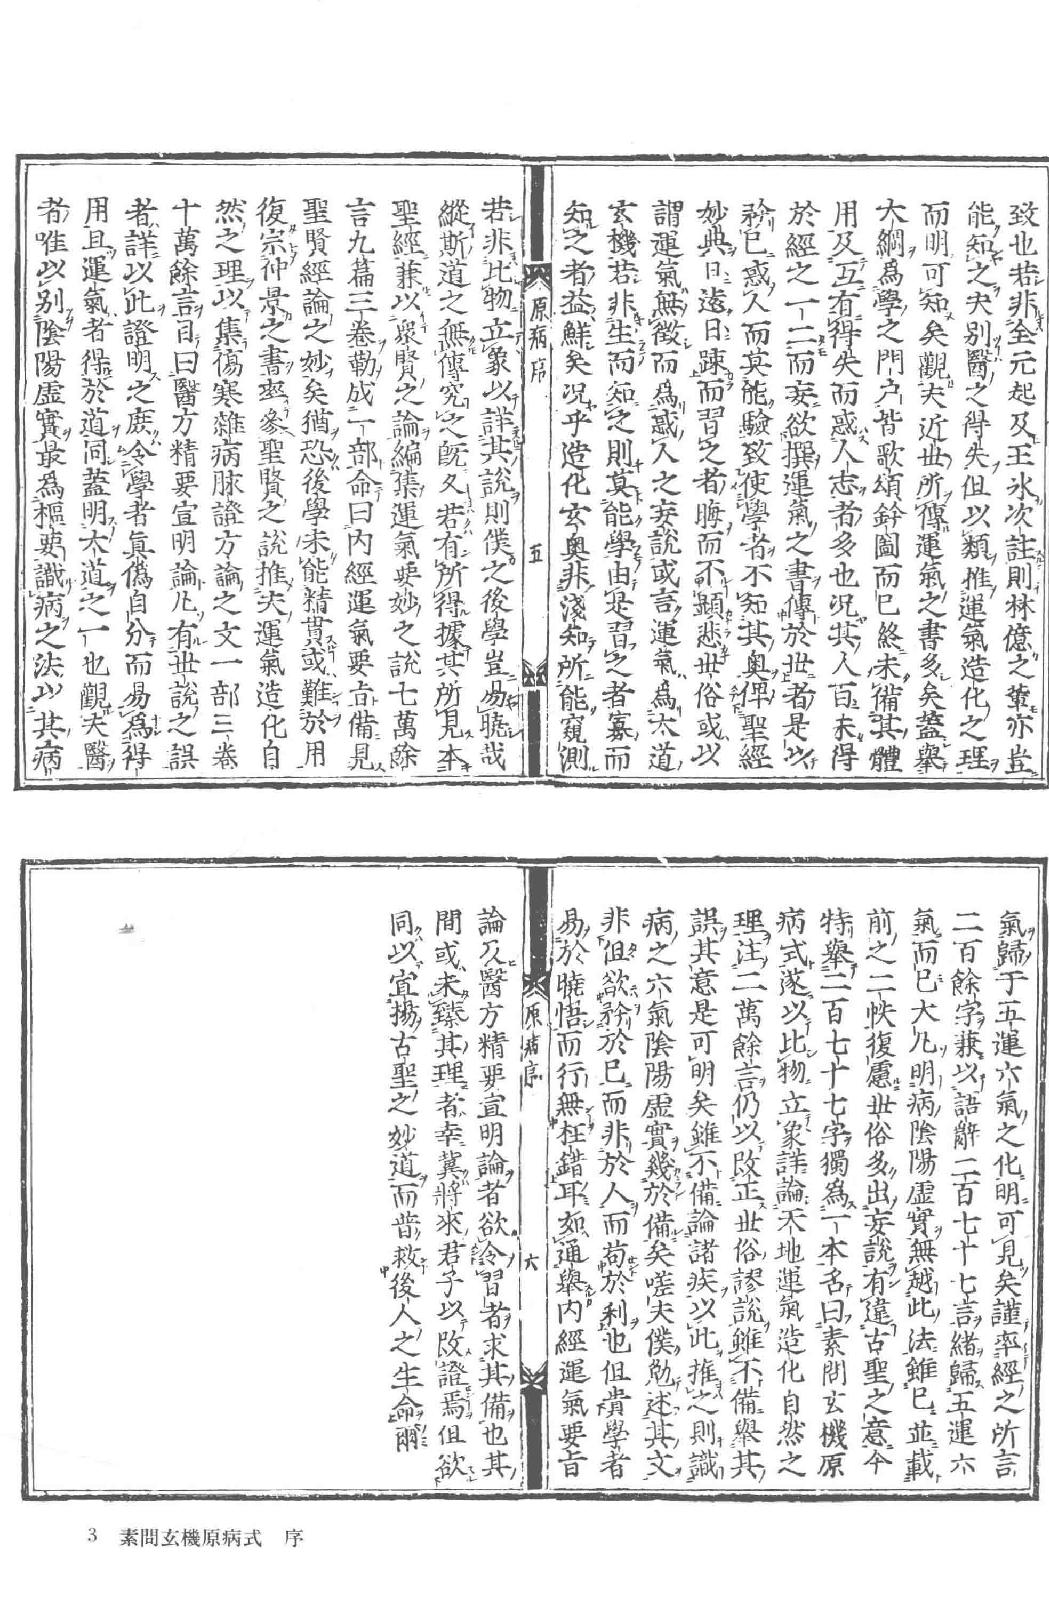 致也若非全元起及王冰次註則林億之輩亦豈
能知之夫別醫之得失但以類推運氣造化之理
而明可知矣觀夫近世所傳運氣之書多矣蓋舉
大綱爲學之門戶皆歌頌鈐圖而已終未備其體
用及互有得失而惑人志者多也況其人百未得
於經之一二而妄欲撰運氣之書傳於世者是以
矜已惑人而莫能驗致使學者不知其奧俾聖經
妙典日遠日踈而習之者晦而不顯悲世俗或以
謂運氣無徵而爲惑人之妄說或言運氣爲大道
玄機若非生而知之則莫能學由是習之者寡而
知之者益鮮矣況乎造化玄奧非淺知所能窺測
原病序
五
若非比物立象以詳其說則僕之後學豈易曉哉
縱斯道之無傳究之旣久若有所得據其所見本
聖經兼以衆賢之論編集運氣要妙之說七萬餘
言九篇三卷勒成一部命曰內經運氣要旨備見
聖賢經論之妙矣猶恐後學未能精貫或難於用
復宗仲景之書率參聖賢之說推夫運氣造化自
然之理以集傷寒雜病脉證方論之文一部三卷
十萬餘言目曰醫方精要宣明論凡有世說之誤
者詳以此證明之庶令學者眞僞自分而易爲得
用且運氣者得於道同蓋明大道之一也觀夫醫
者唯以別陰陽虛實最爲樞要識病之法以其病
氣歸于五運六氣之化明可見矣謹率經之所言
二百餘字兼以語辭二百七十七言緒歸五運六
氣而已大凡明病陰陽虛實無越此法雖已並載
前之二帙復慮世俗多出妄說有違古聖之意今
特舉二百七十七字獨爲一本名曰素問玄機原
病式遂以比物立象詳論天地運氣造化自然之
理注二萬餘言仍以改正世俗謬說雖不備舉其
誤其意是可明矣雖不備論諸疾以此推之則識
病之六氣陰陽虛實幾於備矣嗟夫僕勉述其文
非但欲矜於已而非於人而苟於利也但貴學者
易於曉悟而行無枉錯耳如通舉內經運氣要旨
原病序
六
論及醫方精要宣明論者欲令習者求其備也其
間或未臻其理者幸冀將來君子以改證焉但欲
同以宣揚古聖之妙道而普救後人之生命爾
3 素問玄機原病式 序